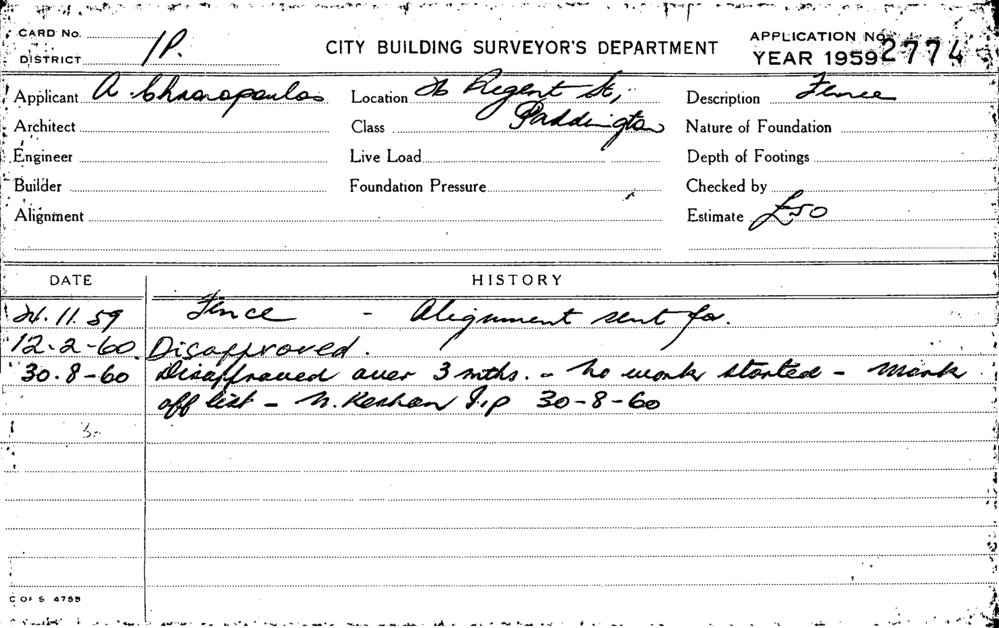 CARD No.
DISTRICT 1P.
CITY BUILDING SURVEYOR'S DEPARTMENT
APPLICATION No. 2774
YEAR 1959
Applicant A Location Regent St, Description Fence
Architect Class Paddington Nature of Foundation
Engineer Live Load Depth of Footings
Builder Foundation Pressure Checked by
Alignment Estimate £50
DATE HISTORY
11.59 Fence - Alignment sent for.
12-2-60 Disapproved.
30.8-60 Disapproved over 3 mths. - No work started - Mark
off list - I.P 30-8-60
C OF S 4755